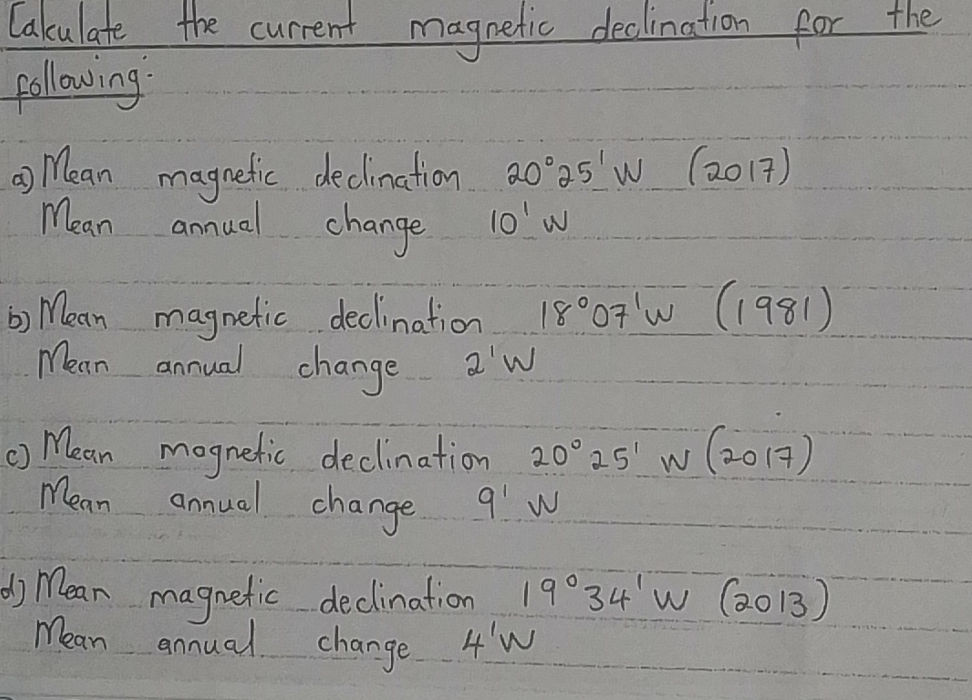 Calculate the current magnetic declination for the
following:
a) Mean magnetic declination 20°25'W (2017)
Mean annual change 10'W
b) Mean magnetic declination 18°07'W (1981)
Mean annual change 2'W
c) Mean magnetic declination 20°25' W (2017)
Mean annual change 9' W
d) Mean magnetic declination 19°34'W (2013)
Mean annual change 4'W